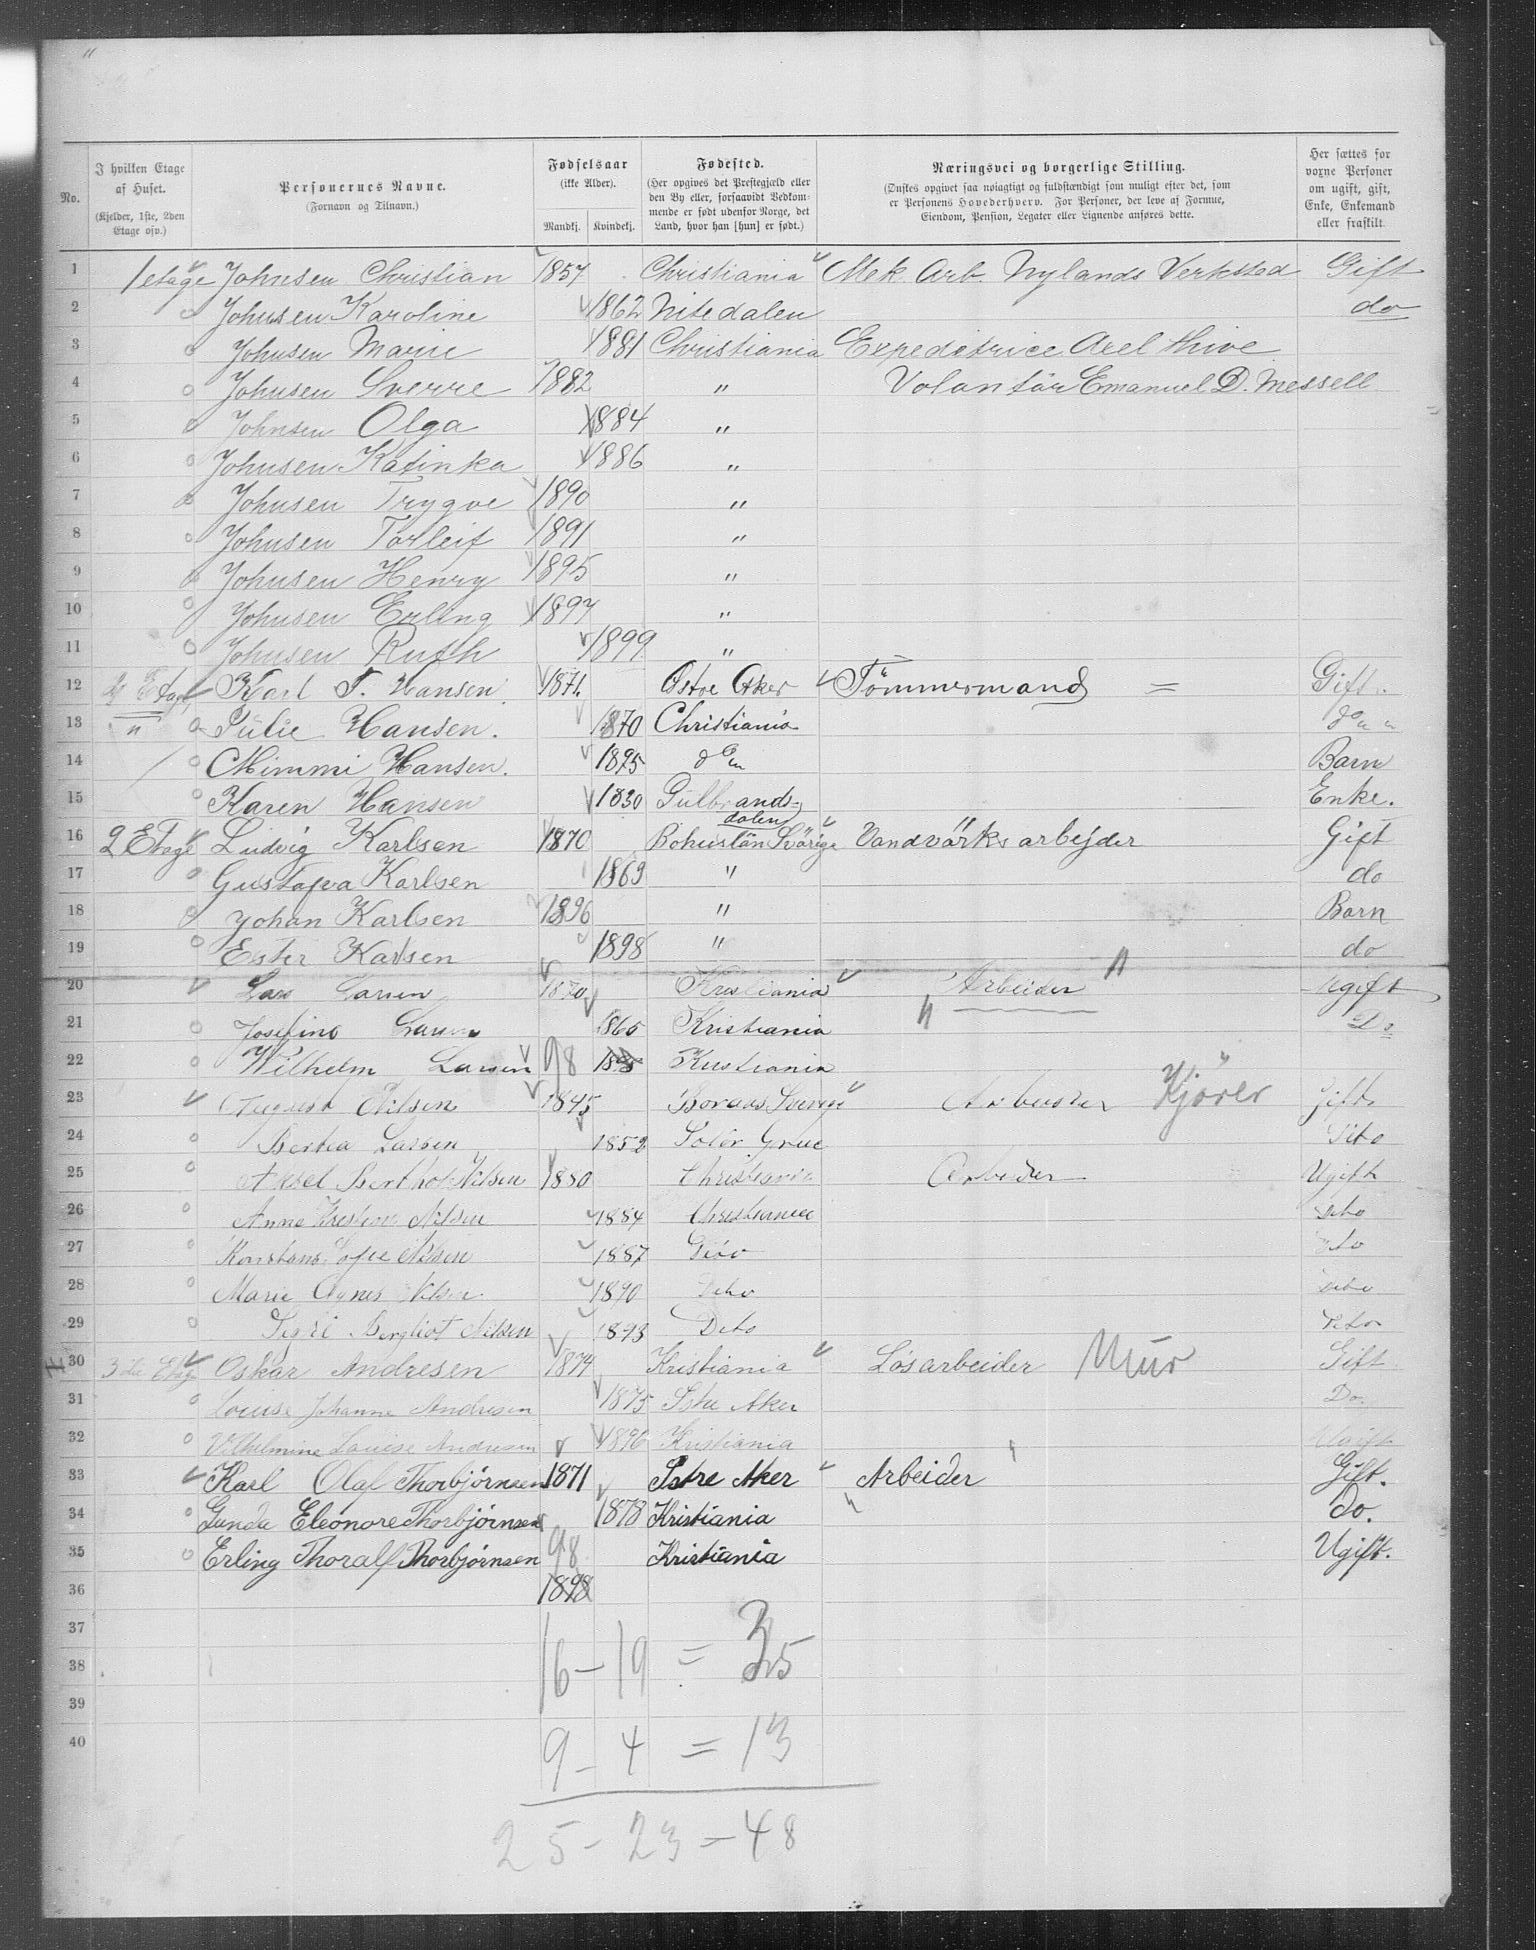 "
No.
I hvilken Etage af Huset.
(Kjelder, 1ste, 2den Etage osv.)
Personernes Navne.
(Fornavn og Tilnavn.)
Fødselsaar
(ikke Alder).
Mandkj. Kvindekj.
Fødested.
(Her opgives det Prestegjæld eller den By eller, forsaavidt Vedkommende er født udenfor Norge, det Land, hvor han [hun] er født.)
Næringsvei og borgerlige Stilling.
(Ønskes opgivet saa nøiagtigt og fuldstændigt som muligt efter det, som er Personens Hovederhverv. For Personer, der leve af Formue, Eiendom, Pension, Legater eller Lignende anføres dette.
Her sættes for voxne Personer om ugift, gift, Enke, Enkemand eller fraskilt.
1 1 etage Johnsen Christian 1857 Christiania Mek. Arb. Nylands Verksted Gift
2 Johnsen Karoline 1862 Nitedalen do
3 Johnsen Marie 1881 Christiania Expeditrice Axel Thive
4 Johnsen Sverre 1882 " Volantör Emanuel D. Messell
5 Johnsen Olga 1884 "
6 Johnsen Katinka 1886 "
7 Johnsen Trygve 1890 "
8 Johnsen Torleif 1891 "
9 Johnsen Henry 1895 "
10 Johnsen Erling 1897 "
11 Johnsen Ruth 1899 "
12 Etage Karl T. Hansen 1871 Østre Aker Tömmermand = Gift.
13 " Julie Hansen. 1870 Christiania do
14 Mimmi Hansen. 1895 do Barn
15 Karen Hansen 1830 Gulbrandsdalen Enke.
16 2 Etage Ludvig Karlsen 1870 Bohuslän Svärige Vandvärks arbejder Gift
17 Gustafva Karlsen 1869 " do
18 Johan Karlsen 1896 " Barn
19 Ester Karlsen 1898 " do
20 Lars Larsen 1870 Kristiania Arbeider Ugift
21 Josefine Larsen 1865 Kristiania Do
22 Wilhelm Larsen 98 Kristiania
23 August Nilsen 1845 Boraas Sverige Arbeider Kjörer Gift
24 Bertea Larsen 1852 Solör Grue Dito
25 Aksel Berthol Nilsen 1880 Christiania Arbeider Ugift
26 Anna Nilsen 1884 Christiania Dito
27 Konstans Sofie Nilsen 1887 Dito
28 Marie Agnes Nilsen 1890 Deto Deto
29 Sigri Bergliot Nilsen 1893 Deto Deto
30 3die Etage Oskar Andresen 1874 Kristiania Lösarbeider Mur Gift
31 Louise Johanne Andresen 1875 Østre Aker Do.
32 Vilhelmine Louise Andresen 1896 Kristiania Ugift
33 Karl Olaf Thorbjörnsen 1871 Østre Aker Arbeider Gift.
34 Gunda Eleonore Thorbjörnsen 1878 Kristiania " Do.
35 Erling Thoralf Thorbjörnsen 98 Kristiania Ugift.
36 1898
37
38 16 - 19 = 35
39
40 9 - 4 = 13
25 - 23 = 48